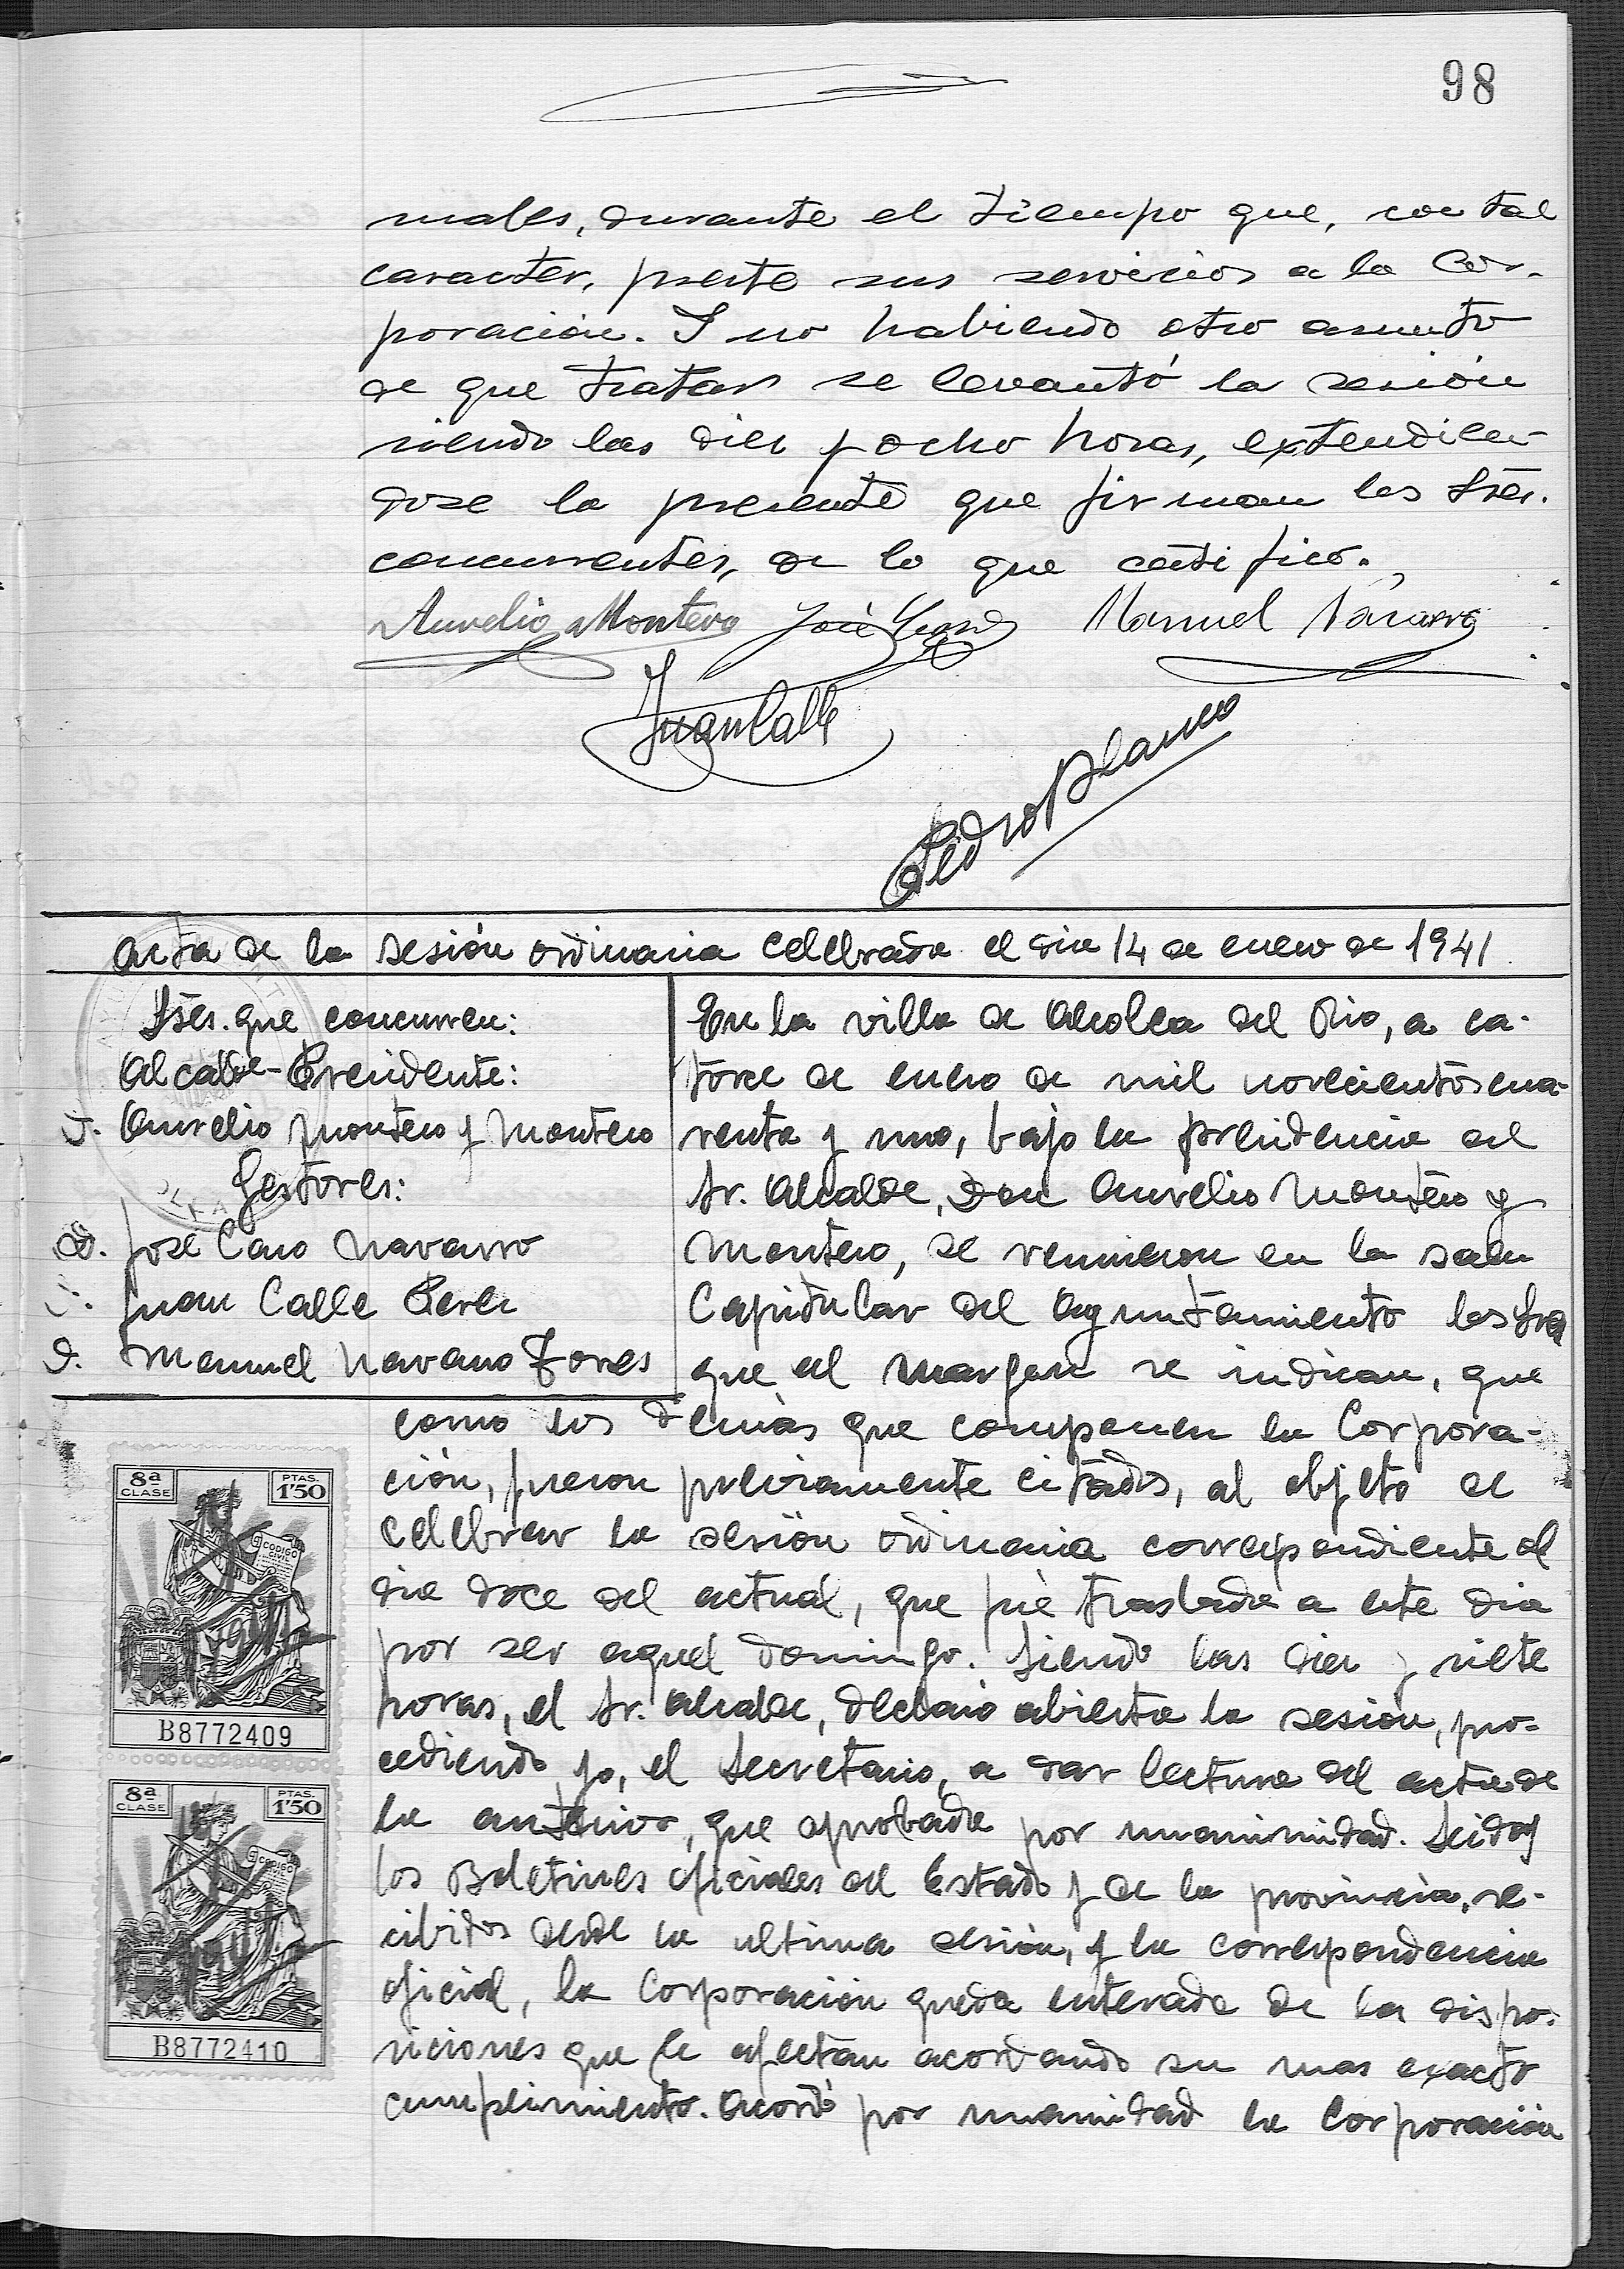 98
nales, durante el tiempo que, con tal
caracter, preste sus servicios a la Cor-
poración. Y no habiendo otro asunto
de que tratar se levantó la sesión
siendo las diez y ocho horas, extendien-
dose la presente que firman los Sres.
concurrentes, de lo que certifico.
Aurelio Montero José Caro Manuel Navarro
Juan Calle
Pedro Blanco
Acta de la sesión ordinaria celebrada el dia 14 de enero de 1941
Sres. que concurren:
Alcalde-Presidente:
D. Aurelio Montero y Montero
Gestores:
D. José Caro Navarro
D. Juan Calle Perez
D. Manuel Navarro Torres
En la villa de Alcolea del Rio, a ca-
torce de enero de mil novecientos cua-
renta y uno, bajo la presidencia del
Sr. Alcalde, Don Aurelio Montero y
Montero, se reunieron en la sala
Capitular del Ayuntamiento los Sres
que al margen se indican, que
como los demás que componen la Corpora-
ción, fueron previamente citados, al objeto de
celebrar la sesión ordinaria correspondiente al
dia doce del actual, que fué trasladada a este dia
por ser aquel domingo. Siendo las diez y siete
horas, el Sr. Alcalde, declaró abierta la sesión, pro-
cediendo, yo, el Secretario, a dar lectura del acta de
la anterior, que aprobada por unanimidad. Leidos
los Boletines oficiales del Estado y de la provincia, re-
cibidos desde la ultima sesión, y la correspondencia
oficial, la Corporación queda enterada de la dispo-
siciones que le afectan acordando su mas exacto
cumplimiento. Acordó por unanimidad la Corporación
8ª
CLASE
PTAS.
1'50
CODIGO
CIVIL
B8772409
8ª
CLASE
PTAS.
1'50
CODIGO
B8772410